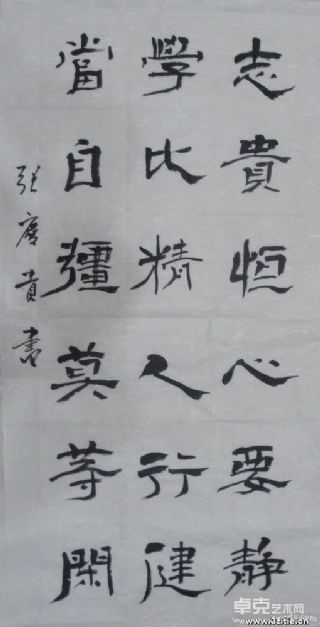 志貴恒心要静
學比精人行健
當自彊莫等閑
張度貴書
卓克艺术网